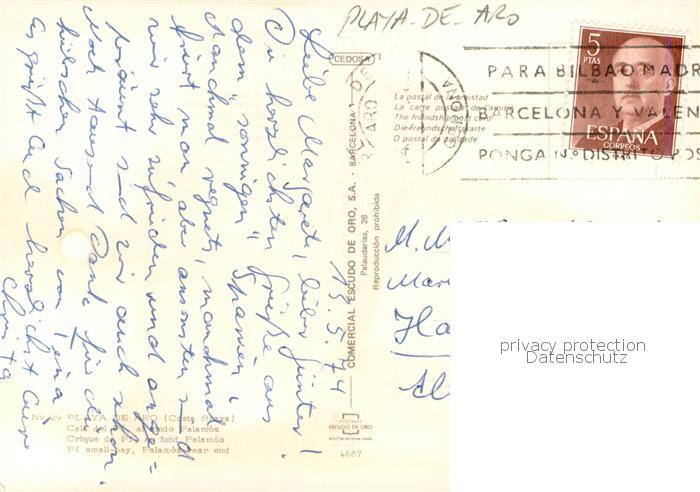 PLAYA-DE-ARO
5
PTAS
ESPAÑA
CORREOS
PARA BILBAO MADR
BARCELONA Y VALEN
PONGA N.º DISTRITO POS
CEDOSA
La postal de la amistad
La carte postale de l'amitié
The friendship post card
Die Freundschaftskarte
O postal de amizade
Liebe Margaret, lieber Günter!
Die herzlichsten Grüße aus
dem "sonnigen" Spanien,
manchmal regnet's, manchmal
friert man, aber ansonsten sind
wir sehr zufrieden und
sind wir auch schon.
Noch tausend Dank für die
hübschen Sachen von
Es grüßt Euch herzlichst Eure
Christa
15.5.74
COMERCIAL ESCUDO DE ORO, S.A. - BARCELONA
Palaudarias, 26
Reproducción prohibida
M.
Ha
privacy protection
Datenschutz
PLAYA DE ARO (Costa Brava)
Cala del Pi al fondo Palamós
Crique du Pi au fond Palamós
Pí small-bay, Palamós rear end
POSTALES
ESCUDO DE ORO
4687